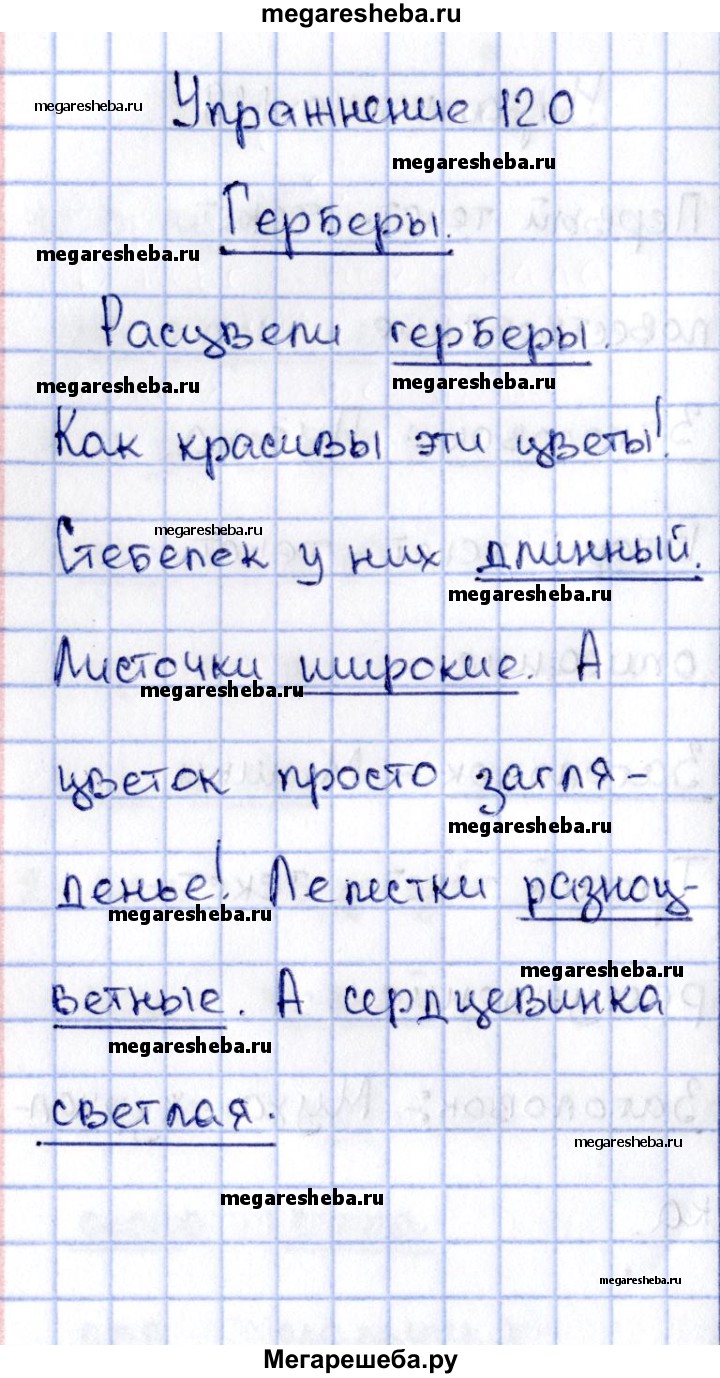 megaresheba.ru
megaresheba.ru
Упражнение 120
megaresheba.ru
Герберы.
megaresheba.ru
Расцвели герберы.
megaresheba.ru
megaresheba.ru
Как красивы эти цветы!
megaresheba.ru
Стебелек у них длинный.
megaresheba.ru
Листочки широкие. А
megaresheba.ru
цветок просто загля-
megaresheba.ru
денье! Лепестки разноц-
megaresheba.ru
megaresheba.ru
ветные. А сердцевинка
megaresheba.ru
светлая.
megaresheba.ru
megaresheba.ru
megaresheba.ru
Мегарешеба.ру